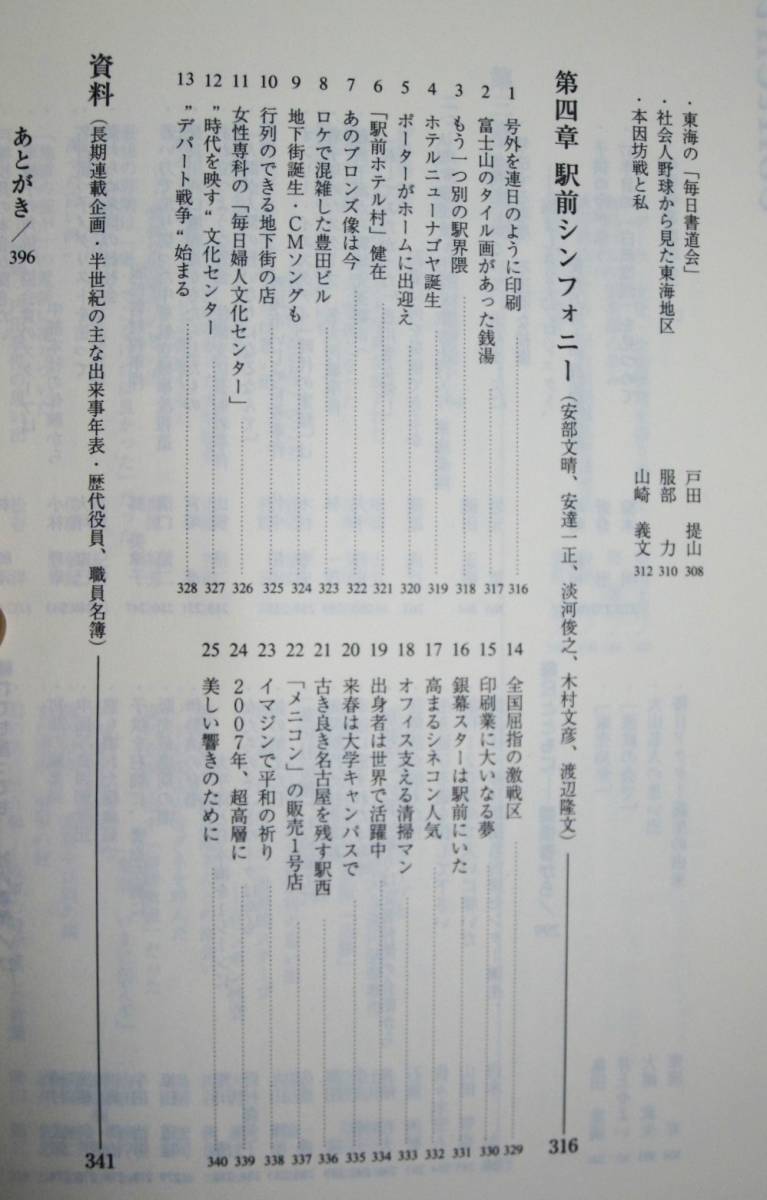 ・東海の「毎日書道会」 戸田 提山 308
・社会人野球から見た東海地区 服部 力 310
・本因坊戦と私 山崎 義文 312
第四章 駅前シンフォニー(安部文晴、安達一正、淡河俊之、木村文彦、渡辺隆文) 316
1 号外を連日のように印刷 316
2 富士山のタイル画があった銭湯 317
3 もう一つ別の駅界隈 318
4 ホテルニューナゴヤ誕生 319
5 ポーターがホームに出迎え 320
6 「駅前ホテル村」健在 321
7 あのブロンズ像は今 322
8 ロケで混雑した豊田ビル 323
9 地下街誕生・CMソングも 324
10 行列のできる地下街の店 325
11 女性専科の「毎日婦人文化センター」 326
12 〝時代を映す〟文化センター 327
13 〝デパート戦争〟始まる 328
14 全国屈指の激戦区 329
15 印刷業に大いなる夢 330
16 銀幕スターは駅前にいた 331
17 高まるシネコン人気 332
18 オフィス支える清掃マン 333
19 出身者は世界で活躍中 334
20 来春は大学キャンパスで 335
21 古き良き名古屋を残す駅西 336
22 「メニコン」の販売1号店 337
23 イマジンで平和の祈り 338
24 2007年、超高層に 339
25 美しい響きのために 340
資料(長期連載企画・半世紀の主な出来事年表・歴代役員、職員名簿) 341
あとがき/396